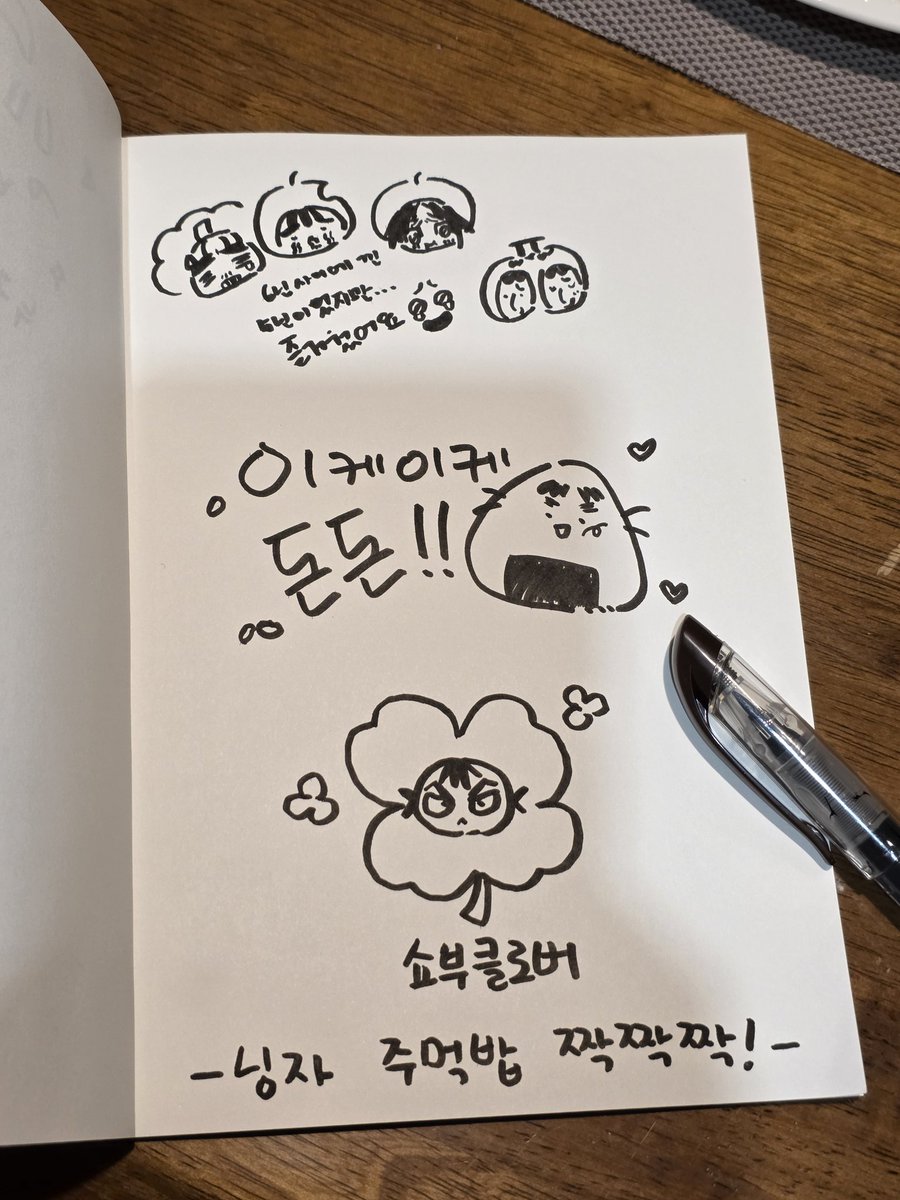 6년 사이에 낀
5년이었지만...
즐거웠어요
이케이케
돈돈!!
쇼부클로버
-닝자 주먹밥 짝짝짝!-